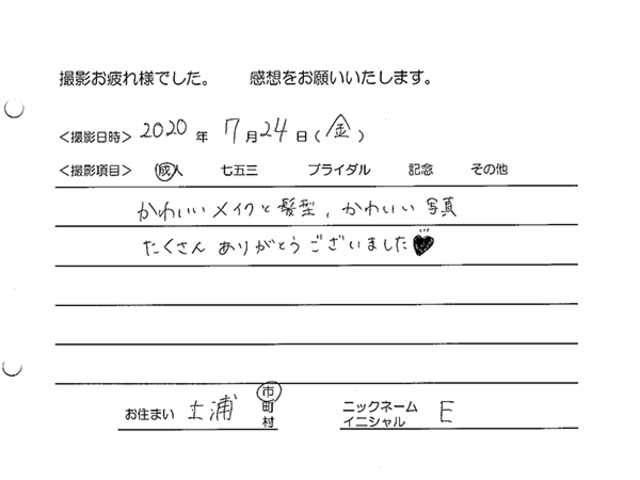 撮影お疲れ様でした。 感想をお願いいたします。
<撮影日時> 2020 年 7 月 24 日 (金)
<撮影項目> 成人 七五三 ブライダル 記念 その他
かわいいメイクと髪型、かわいい写真
たくさん ありがとうございました♥
お住まい 土浦 市 町 村 ニックネーム イニシャル E